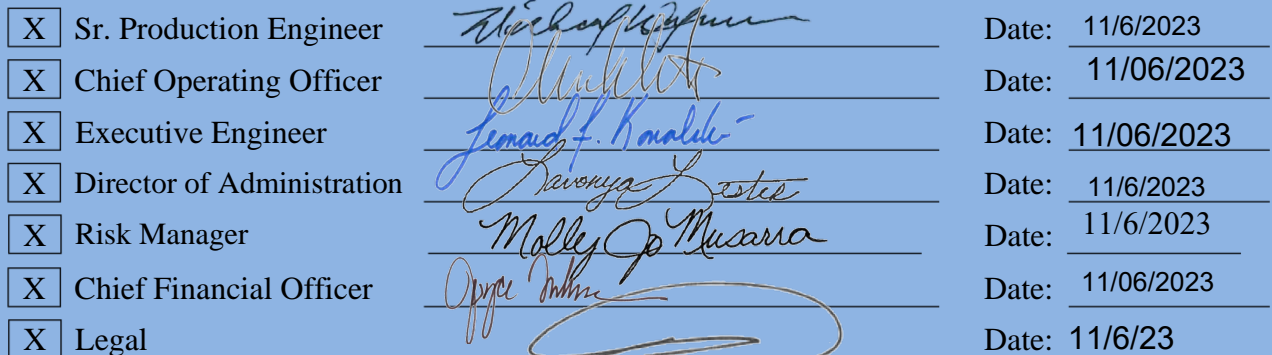 X Sr. Production Engineer Date: 11/6/2023
X Chief Operating Officer Date: 11/06/2023
X Executive Engineer Leonard F. Date: 11/06/2023
X Director of Administration Lavonya Lester Date: 11/6/2023
X Risk Manager Molly Jo Musarra Date: 11/6/2023
X Chief Financial Officer Joyce Date: 11/06/2023
X Legal Date: 11/6/23